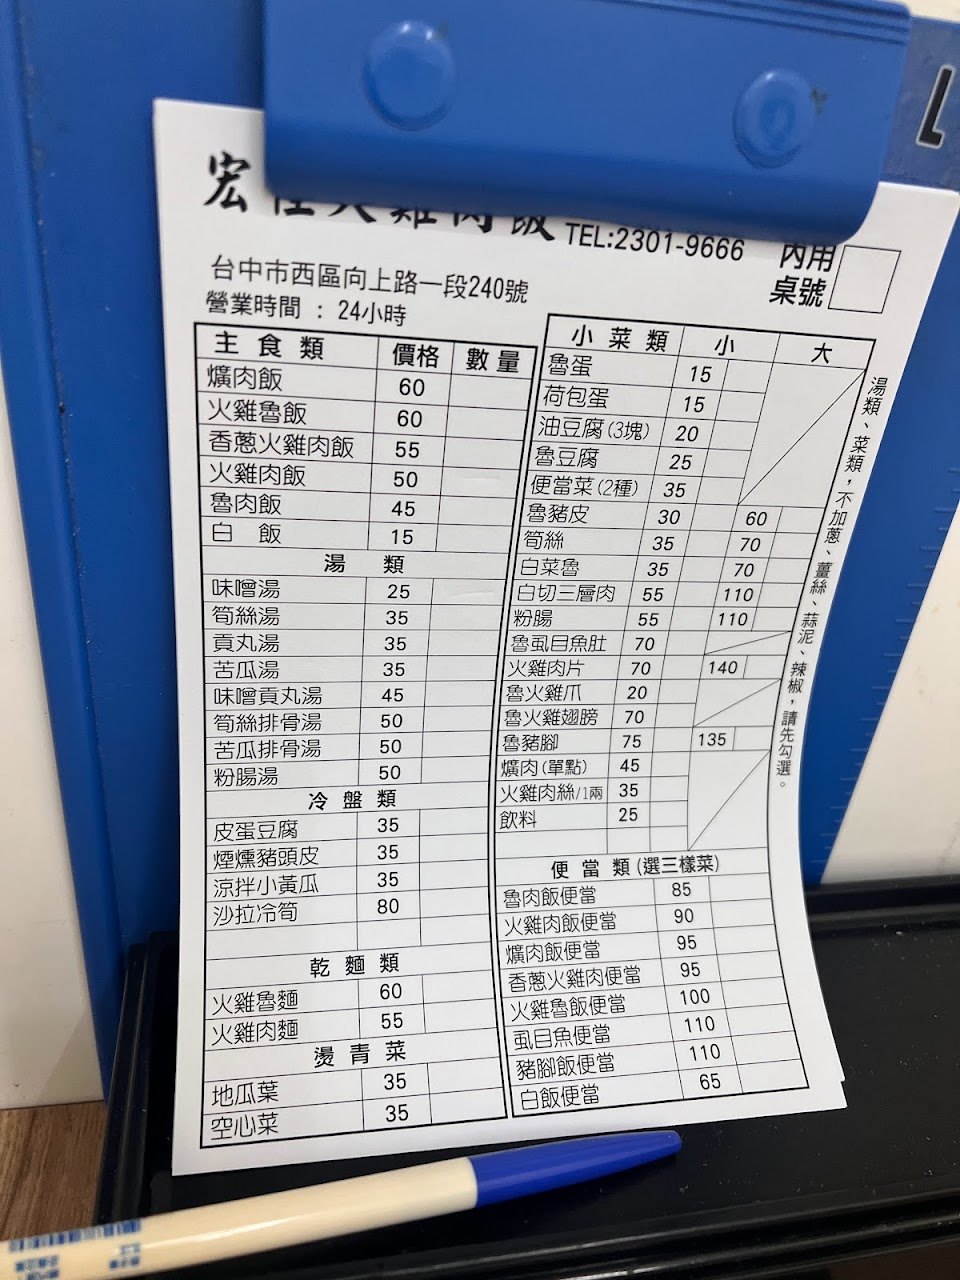 宏
火雞肉飯
TEL:2301-9666
內用
桌號
台中市西區向上路一段240號
營業時間 : 24小時
主食類 價格 數量
爌肉飯 60
火雞魯飯 60
香蔥火雞肉飯 55
火雞肉飯 50
魯肉飯 45
白 飯 15
湯 類
味噌湯 25
筍絲湯 35
貢丸湯 35
苦瓜湯 35
味噌貢丸湯 45
筍絲排骨湯 50
苦瓜排骨湯 50
粉腸湯 50
冷盤類
皮蛋豆腐 35
煙燻豬頭皮 35
涼拌小黃瓜 35
沙拉冷筍 80
乾麵類
火雞魯麵 60
火雞肉麵 55
燙青菜
地瓜葉 35
空心菜 35
小菜類 小 大
魯蛋 15
荷包蛋 15
油豆腐(3塊) 20
魯豆腐 25
便當菜(2種) 35
魯豬皮 30 60
筍絲 35 70
白菜魯 35 70
白切三層肉 55 110
粉腸 55 110
魯虱目魚肚 70
火雞肉片 70 140
魯火雞爪 20
魯火雞翅膀 70
魯豬腳 75 135
爌肉(單點) 45
火雞肉絲/1兩 35
飲料 25
便當類(選三樣菜)
魯肉飯便當 85
火雞肉飯便當 90
爌肉飯便當 95
香蔥火雞肉便當 95
火雞魯飯便當 100
虱目魚便當 110
豬腳飯便當 110
白飯便當 65
湯類、菜類，不加蔥、薑絲、蒜泥、辣椒，請先勾選。